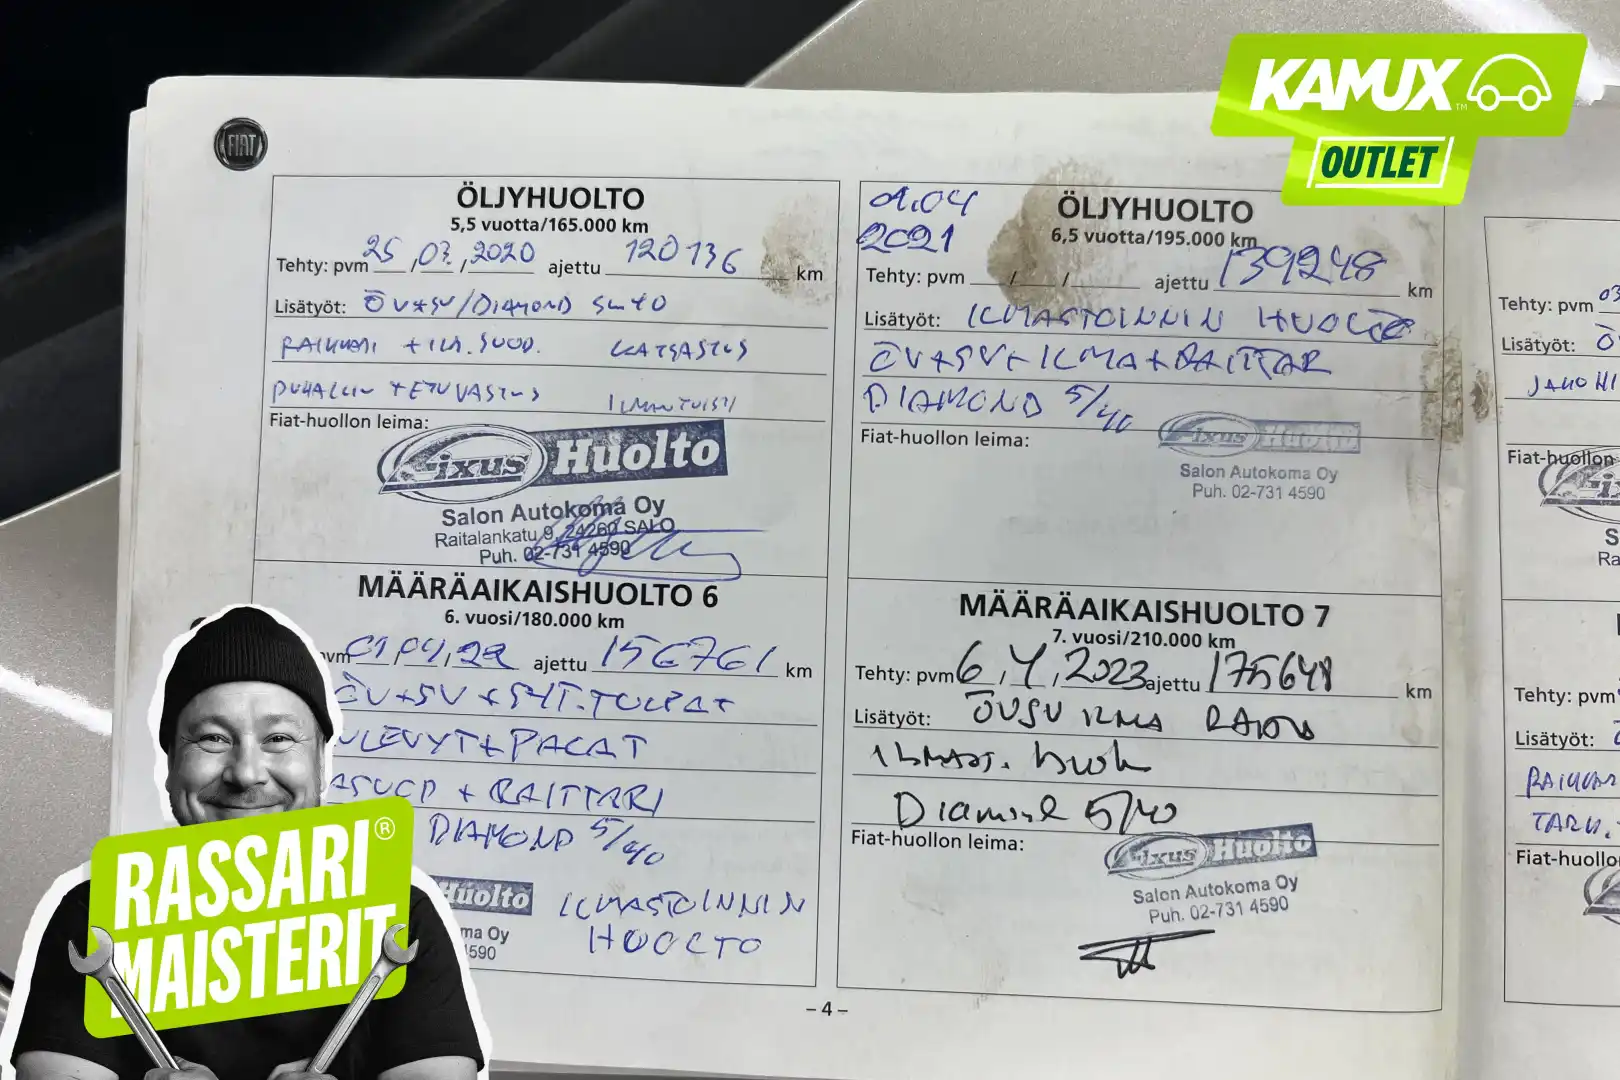 KAMUX™
OUTLET
FIAT
ÖLJYHUOLTO
5,5 vuotta/165.000 km
Tehty: pvm 25 , 03. , 2020 ajettu 120 136 km
Lisätyöt: ÖV+SV/DIAMOND 5W40
RAIKKARI + ILM. SUOD. KATSASTUS
PUHALLIN + ETUVASTUS
Fiat-huollon leima:
Fixus Huolto
Salon Autokoma Oy
Raitalankatu 9, 24260 SALO
Puh. 02-731 4590
MÄÄRÄAIKAISHUOLTO 6
6. vuosi/180.000 km
pvm 01,04,22 ajettu 156761 km
ÖV+SV+SYT.TULPAT
+ PALAT
+ RAITTARI
DIAMOND 5/40
Huolto ILMASTOINNIN
ma Oy HUOLTO
4590
ÖLJYHUOLTO
01.04
2021
6,5 vuotta/195.000 km
Tehty: pvm / / ajettu 139248 km
Lisätyöt: ILMASTOINNIN HUOLTO
ÖV+SV+ILMA+RAITTAR
DIAMOND 5/40
Fiat-huollon leima:
Fixus Huolto
Salon Autokoma Oy
Puh. 02-731 4590
MÄÄRÄAIKAISHUOLTO 7
7. vuosi/210.000 km
Tehty: pvm 6,4,2023 ajettu 175648 km
Lisätyöt: ÖVSV ILMA RAITT
ILMAST. huolt
Diamond 5/40
Fiat-huollon leima:
Fixus Huolto
Salon Autokoma Oy
Puh. 02-731 4590
– 4 –
Tehty: pvm 03
Lisätyöt: Ö
JAKO HI
Fiat-huollon
S
Ra
Tehty: pvm
Lisätyöt:
RAIKKAR
TARK.
Fiat-huollo
RASSARI®
MAISTERIT